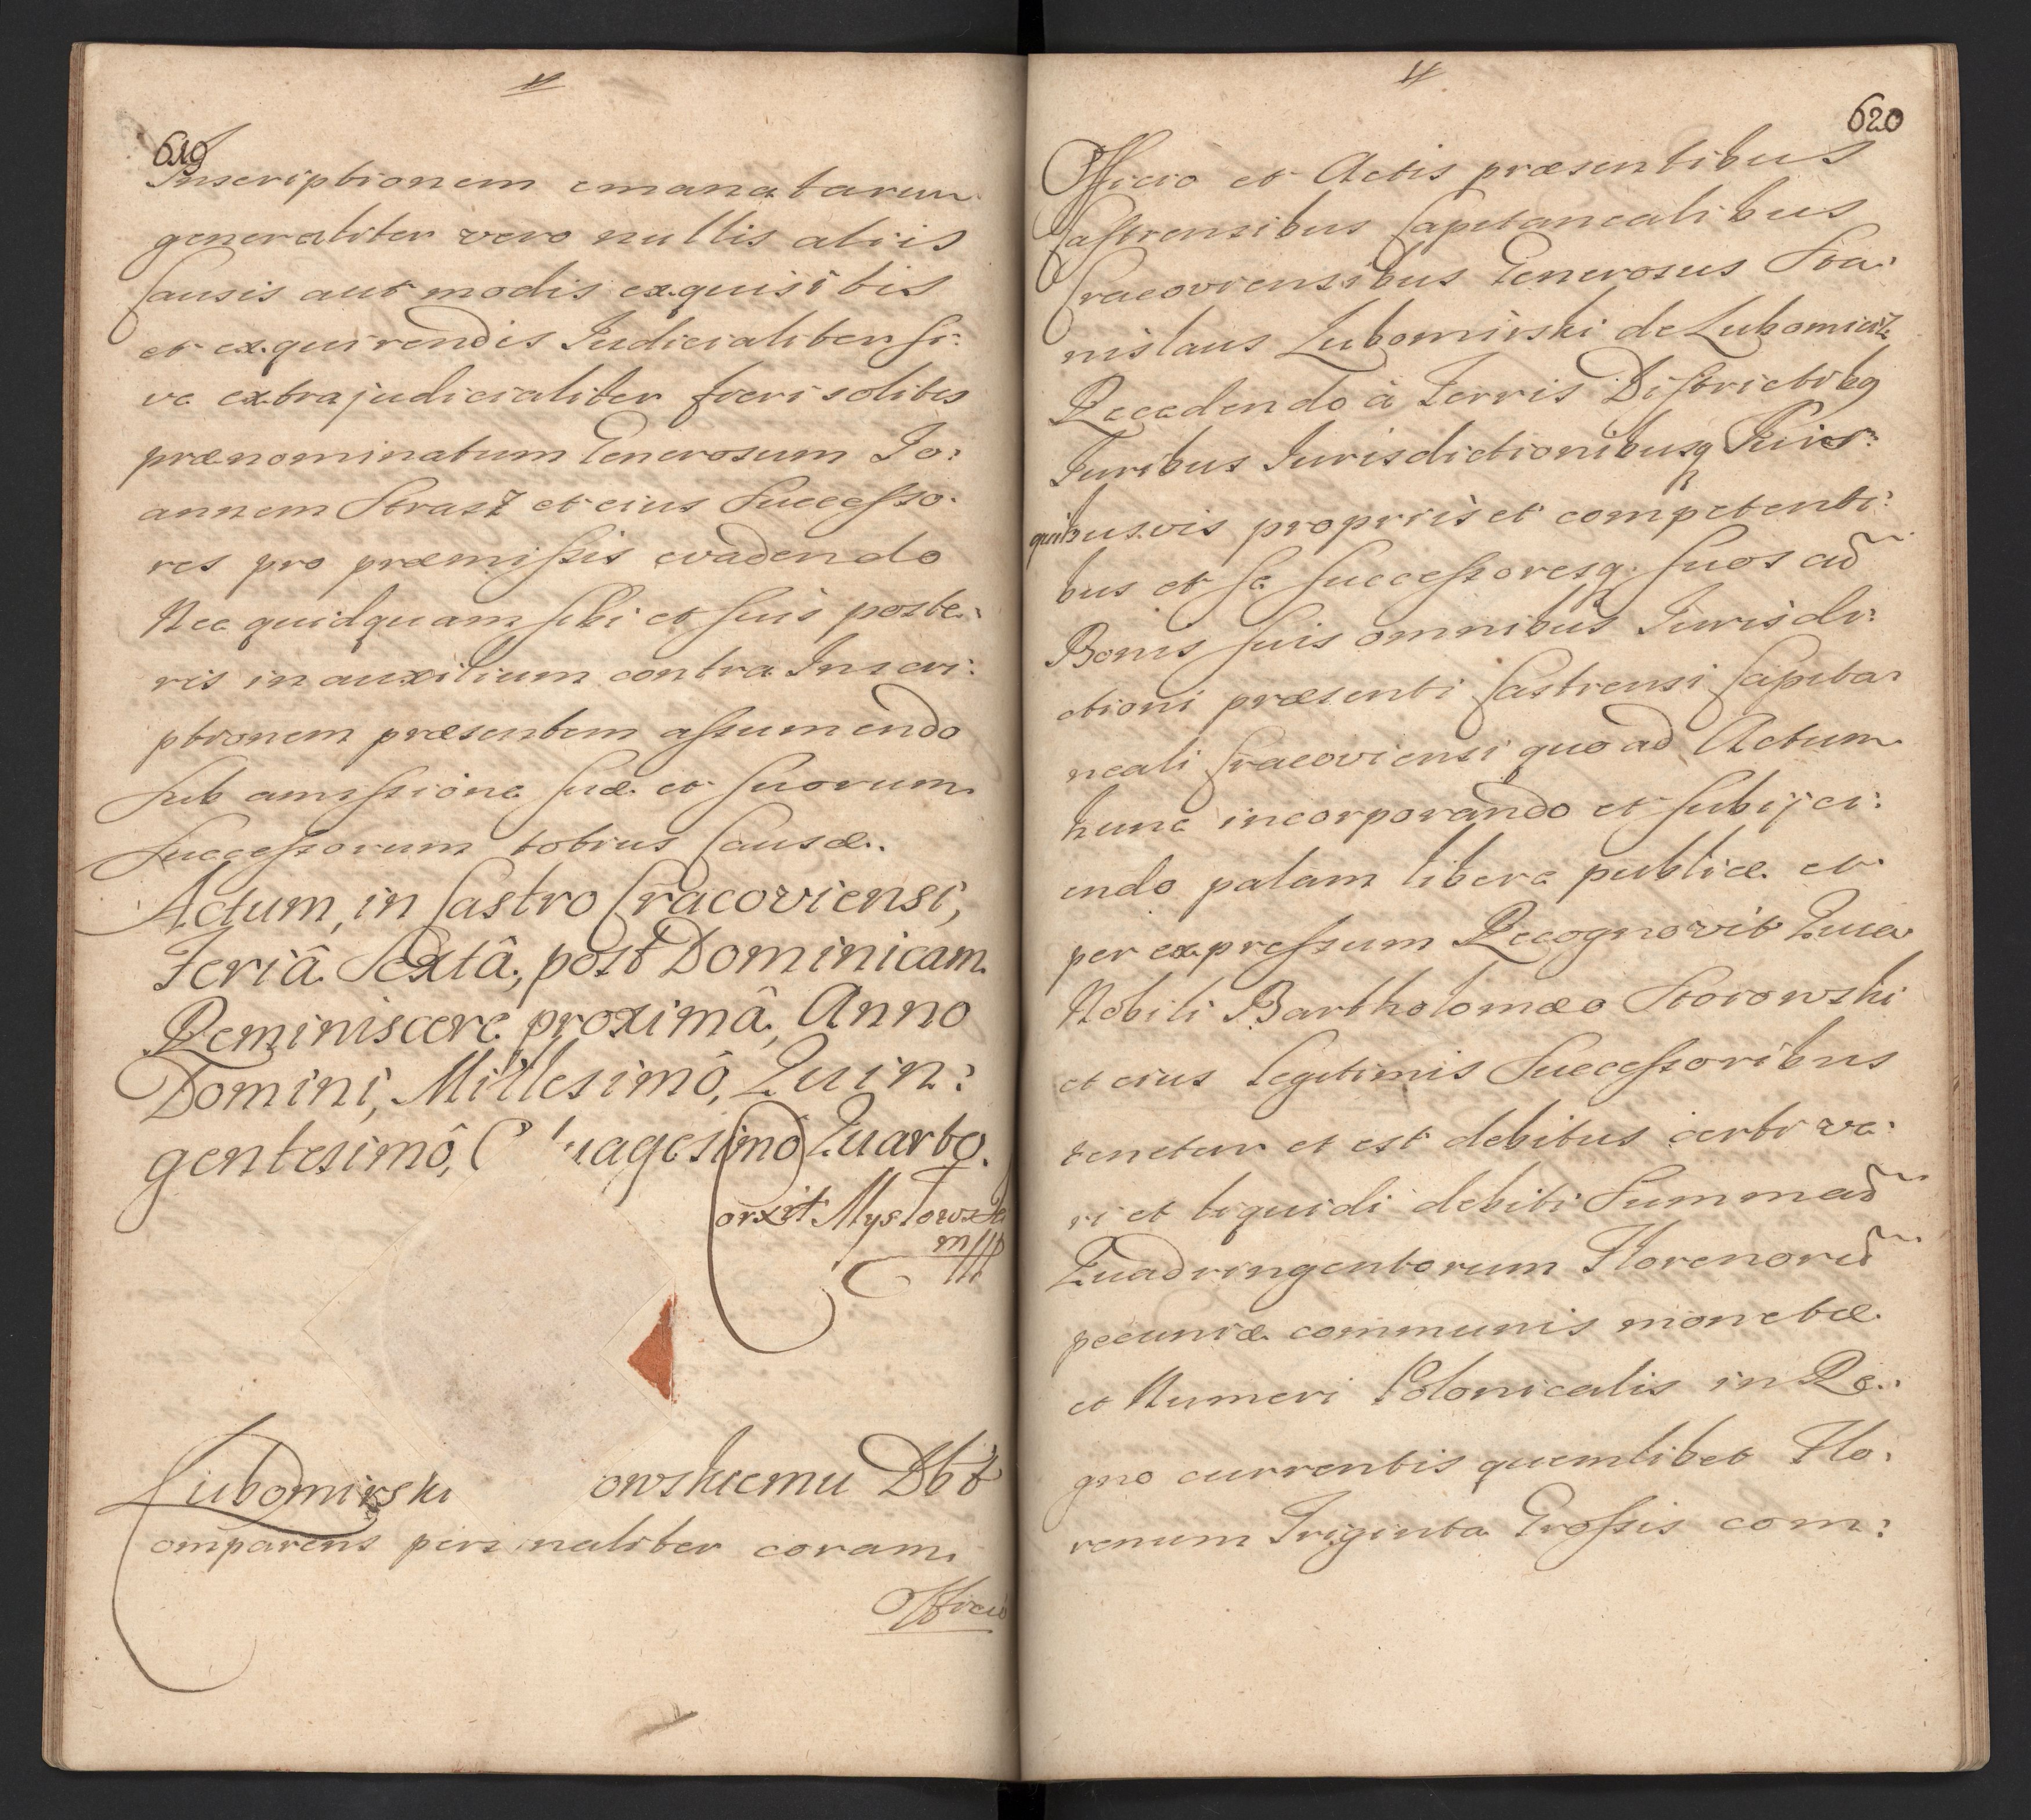 619
Inscriptionem emanatarum
generaliter vero nullis aliis
Causis aut modis exquisitis
et exquirendis Judicialiter si:
ve extrajudicialiter fieri solitis
prænominatum Generosum Jo:
annem Strasz et eius Successo:
res pro præmissis evadendo
Nec quidquam sibi et suis poste:
ris in auxilium contra Inscri:
ptionem præsentem assumendo
Sub amissione suæ et suorum
Successorum totius Causæ.
Actum, in Castro Cracoviensi,
Feriâ Sextâ, post Dominicam
Reminiscere proximâ, Anno
Domini, Millesimô, Quin:
gentesimô, uagesimô Quarto.
Corxit Mysłowski
mpp
Lubomirski owskiemu Dbt
Comparens personaliter coram
Officio
620
Officio et Actis præsentibus
Castrensibus Capitanealibus
Cracoviensibus Generosus Sta:
nislaus Lubomirski de Lubomierz
Recedendo à Terris Districtibq
Juribus Jurisdictionibusq Suis
quibusvis propriis et competenti:
bus et se Successoresq. suos cũ
Bonis suis omnibus Jurisdi:
ctioni præsenti Castrensi Capita:
neali Cracoviensi quo ad Actum
hunc incorporando et subijci:
endo palam libere publice et
per expressum Recognovit Quia
Nobili Bartholomæo Storowski
et eius legitimis Successoribus
tenetur et est debitus certi ve:
ri et liquidi debiti Summã
Quadringentorum Florenorũ
pecuniæ communis monetæ
et Numeri Polonicalis in Re:
gno currentis quemlibet Flo:
renum Triginta Grossis com: